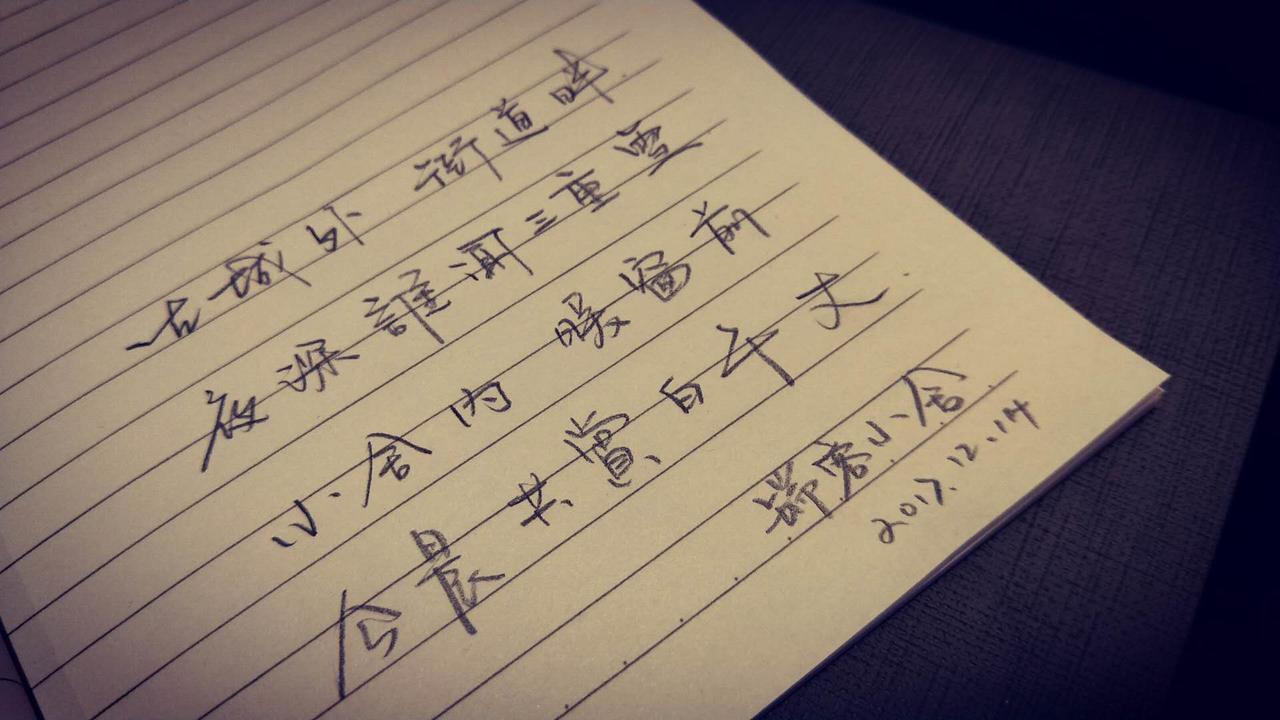 古城外 街道畔
夜深誰涧三重雪
小舍内 暖窗前
今晨共賞白千丈
客小舍
2017.12.14